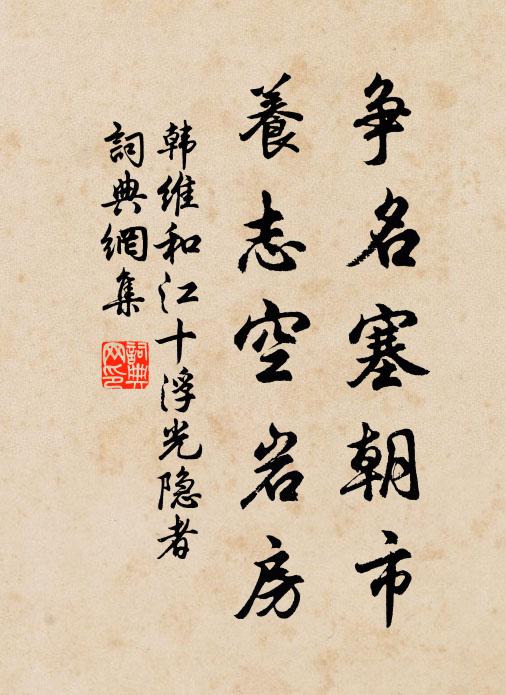 争名塞朝市
養志空岩房
韩维和江十浮光隐者
詞典網集
詞典网印